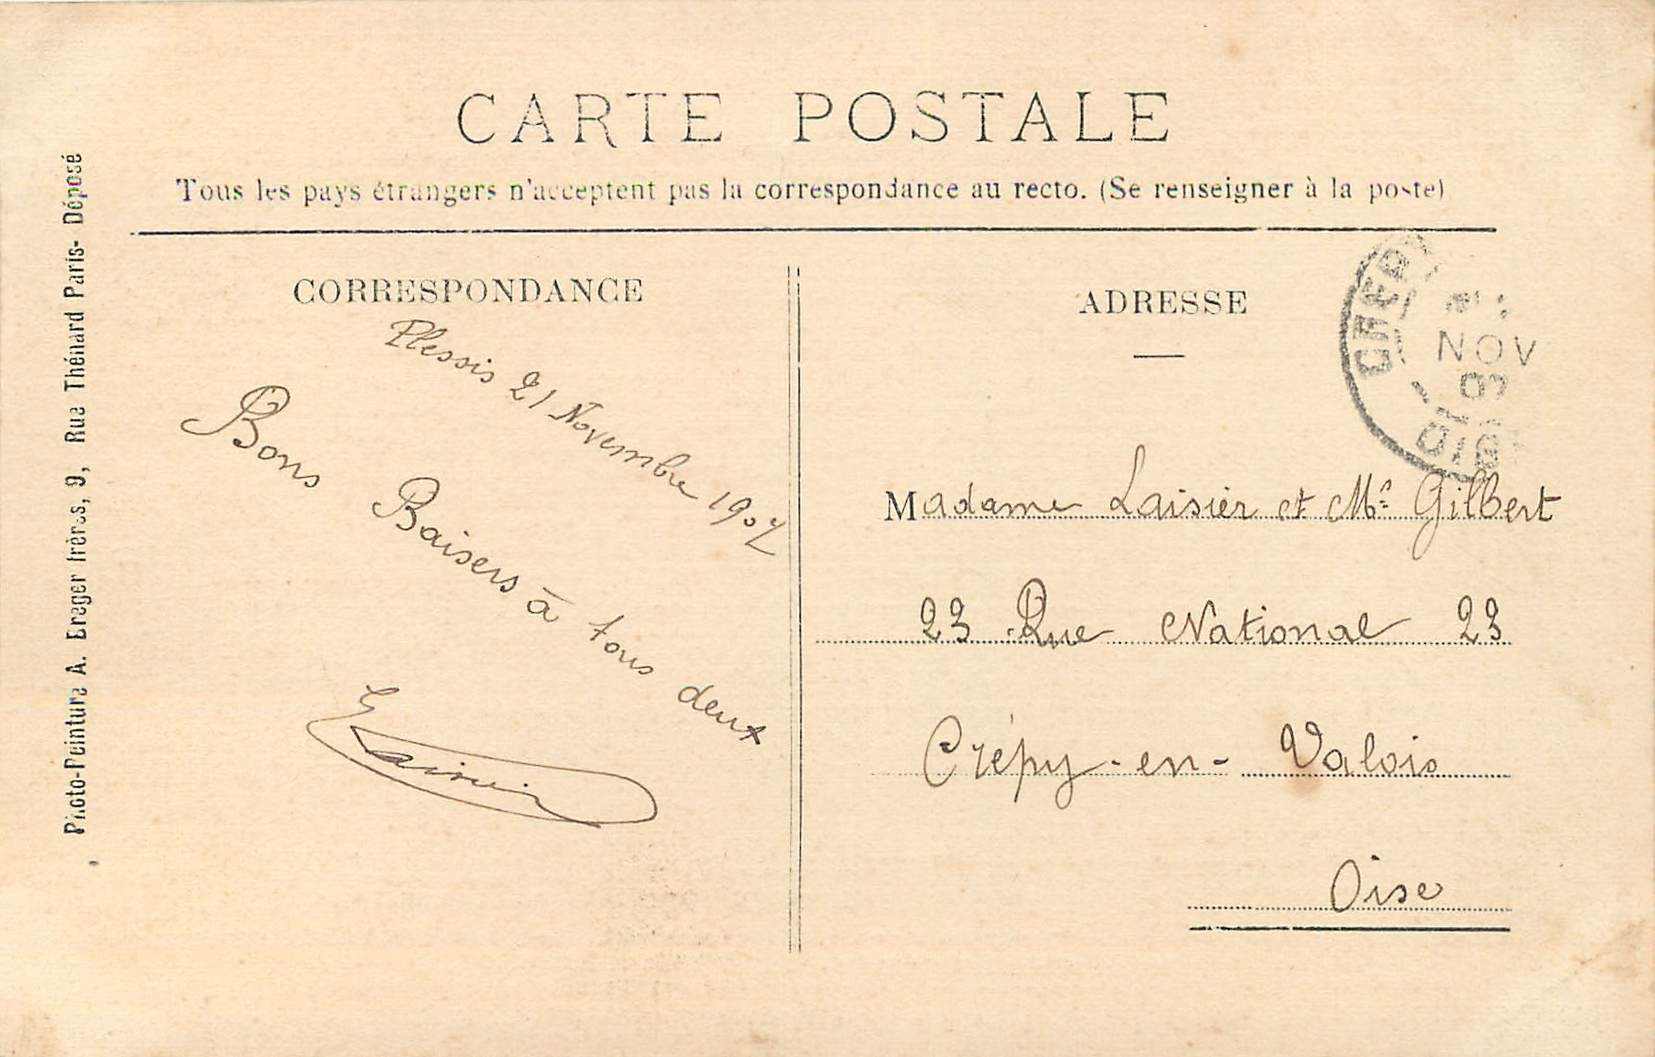 CARTE POSTALE
Tous les pays étrangers n'acceptent pas la correspondance au recto. (Se renseigner à la poste)
Photo-Peinture A. Breger frères, 9, Rue Thénard Paris- Déposé
CORRESPONDANCE
Plessis 21 Novembre 1907
Bons Baisers à tous deux
ADRESSE
NOV
Madame Laisier et Mr Gilbert
23 Rue National 23
Crépy-en-Valois
Oise